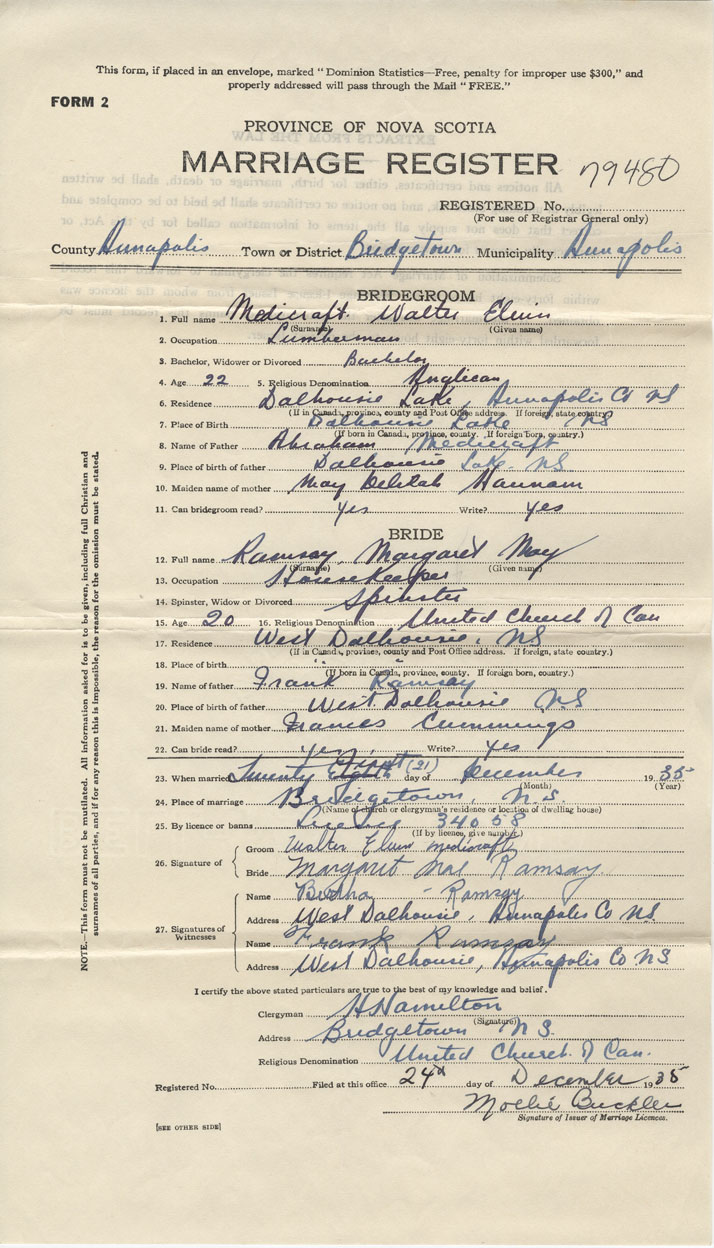 This form, if placed in an envelope, marked "Dominion Statistics—Free, penalty for improper use $300," and
properly addressed will pass through the Mail "FREE."
FORM 2
PROVINCE OF NOVA SCOTIA
MARRIAGE REGISTER 79480
REGISTERED No.
(For use of Registrar General only)
County Annapolis Town or District Bridgetown Municipality Annapolis
BRIDEGROOM
1. Full name Medicraft Walter Elvin
(Surname) (Given name)
2. Occupation Lumberman
3. Bachelor, Widower or Divorced Bachelor
4. Age 22 5. Religious Denomination Anglican
6. Residence Dalhousie Lake, Annapolis Co NS
(If in Canada, province, county and Post Office address. If foreign, state country.)
7. Place of Birth Dalhousie Lake NS
(If born in Canada, province, county. If foreign born, country.)
8. Name of Father Abraham Medicraft
9. Place of birth of father Dalhousie Lake. NS
10. Maiden name of mother May Delilah Hannam
11. Can bridegroom read? yes Write? yes
BRIDE
12. Full name Ramsay, Margaret May
(Surname) (Given name)
13. Occupation Housekeeper
14. Spinster, Widow or Divorced Spinster
15. Age 20 16. Religious Denomination United Church of Can
17. Residence West Dalhousie, NS
(If in Canada, province, county and Post Office address. If foreign, state country.)
18. Place of birth " "
(If born in Canada, province, county. If foreign born, country.)
19. Name of father Frank Ramsay
20. Place of birth of father West Dalhousie NS
21. Maiden name of mother Frances Cummings
22. Can bride read? yes Write? yes
23. When married Twenty Eighth first (21) day of December 1935
(Month) (Year)
24. Place of marriage Bridgetown, N.S.
(Name of church or clergyman's residence or location of dwelling house)
25. By licence or banns 34058
(If by licence, give number)
26. Signature of
Groom Walter Elvin Medicraft
Bride Margaret Mae Ramsay
27. Signatures of Witnesses
Name Ramsay
Address West Dalhousie, Annapolis Co NS.
Name Frank Ramsay
Address West Dalhousie, Annapolis Co NS.
I certify the above stated particulars are true to the best of my knowledge and belief.
Clergyman H Hamilton
(Signature)
Address Bridgetown N S.
Religious Denomination United Church of Can.
Registered No. Filed at this office 24th day of December 1935
Mollie Buckler
Signature of Issuer of Marriage Licences.
[SEE OTHER SIDE]
NOTE.—This form must not be mutilated. All information asked for is to be given, including full Christian and
surnames of all parties, and if for any reason this is impossible, the reason for the omission must be stated.